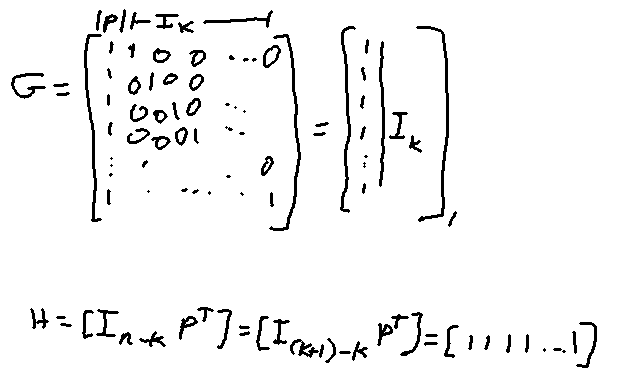 |P|⊢ I_k ⊣
G = [1 1 0 0 ... 0
1 0 1 0 0
1 0 0 1 0 ...
1 0 0 0 1 ...
⋮ . 0
1 . ... . 1] = [1 1 1 1 ⋮ 1 | I_k],
H = [I_{n-k} P^T] = [I_{(k+1)-k} P^T] = [1 1 1 1 ... 1]